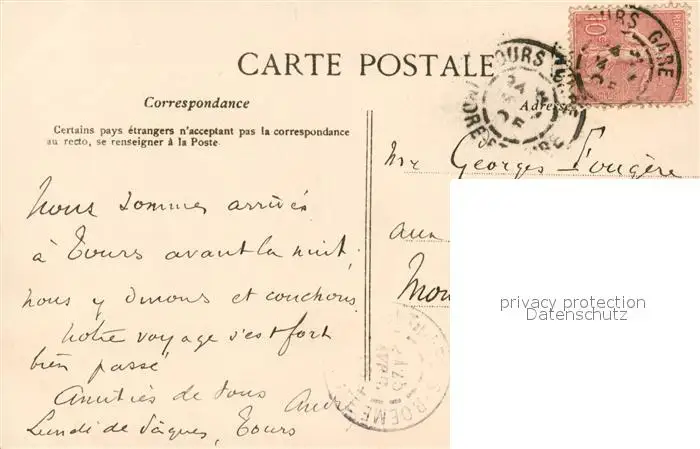 CARTE POSTALE
Correspondance
Certains pays étrangers n'acceptant pas la correspondance
au recto, se renseigner à la Poste.
Nous sommes arrivés
à Tours avant la nuit,
nous y dinons et couchons.
Notre voyage s'est fort
bien passé
Amitiés de tous
André
Lundi de Pâques, Tours
TOURS GARE
10c
TOURS GARE
24
05
INDRE ET LOIRE
Adresse
Mr Georges Fougère
aux
privacy protection
Datenschutz